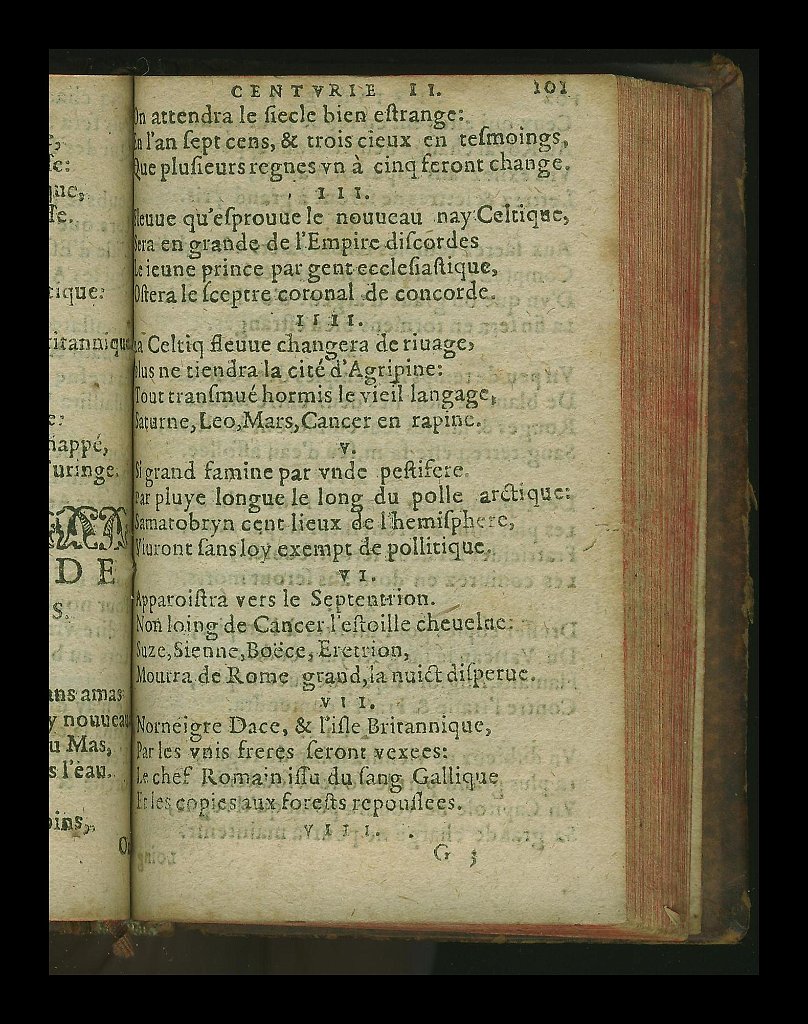 que,
tique:
ritannique
happé,
uringe.
DE
S.
ans amas
y nouueau
u Mas,
s l'eau.
oins,
CENTVRIE II. 101
On attendra le ſiecle bien eſtrange:
En l'an ſept cens, & trois cieux en teſmoings,
Que pluſieurs regnes vn à cinq feront change.
III.
fleuue qu'eſprouue le nouueau nay Celtique,
Sera en grande de l'Empire diſcordes
Le ieune prince par gent eccleſiaſtique,
Oſtera le ſceptre coronal de concorde.
IIII.
La Celtiq fleuue changera de riuage,
plus ne tiendra la cité d'Agripine:
Tout tranſmué hormis le vieil langage,
Saturne, Leo, Mars, Cancer en rapine.
V.
Si grand famine par vnde peſtifere.
Par pluye longue le long du polle arctique:
Samatobryn cent lieux de l'hemiſphere,
Viuront ſans loy exempt de pollitique.
VI.
Apparoiſtra vers le Septentrion.
Non loing de Cancer l'eſtoille cheuelue:
Suze, Sienne, Boëce, Eretrion,
Mourra de Rome grand, la nuict diſperue.
VII.
Norneigre Dace, & l'iſle Britannique,
Par les vnis freres ſeront vexees:
Le chef Romain iſſu du ſang Gallique
Et les copies aux foreſts repouſlees.
VIII.
G 3